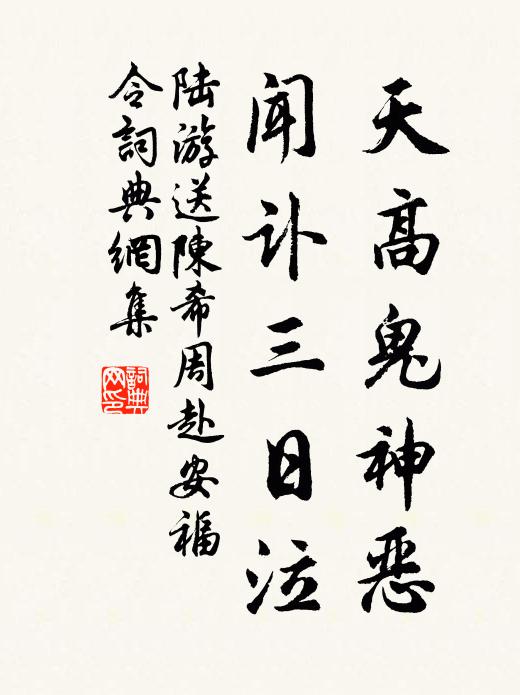 天高鬼神恶
闻讣三日泣
陆游送陳希周赴安福
令詞典網集
詞典
网印